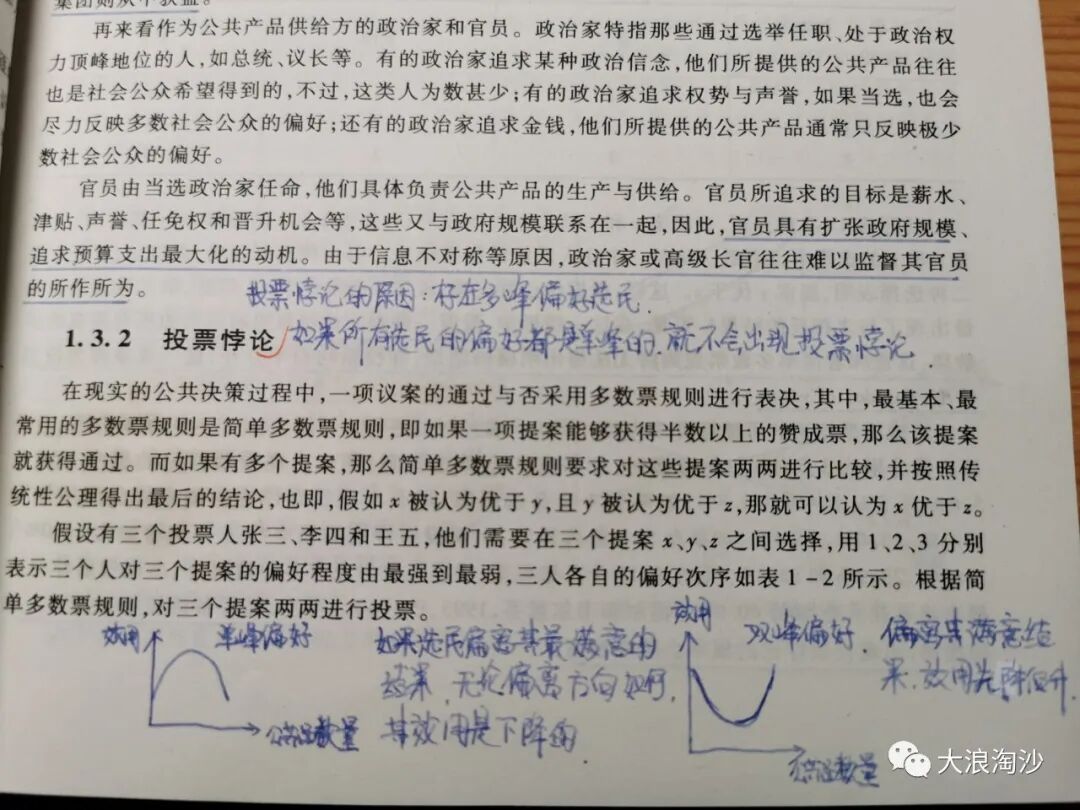 集团则从中获益。
再来看作为公共产品供给方的政治家和官员。政治家特指那些通过选举任职、处于政治权
力顶峰地位的人，如总统、议长等。有的政治家追求某种政治信念，他们所提供的公共产品往往
也是社会公众希望得到的，不过，这类人为数甚少；有的政治家追求权势与声誉，如果当选，也会
尽力反映多数社会公众的偏好；还有的政治家追求金钱，他们所提供的公共产品通常只反映极少
数社会公众的偏好。
官员由当选政治家任命，他们具体负责公共产品的生产与供给。官员所追求的目标是薪水、
津贴、声誉、任免权和晋升机会等，这些又与政府规模联系在一起，因此，官员具有扩张政府规模、
追求预算支出最大化的动机。由于信息不对称等原因，政治家或高级长官往往难以监督其官员
的所作所为。
投票悖论的原因：存在多峰偏好选民.
1.3.2 投票悖论
如果所有选民的偏好都是单峰的，就不会出现投票悖论
在现实的公共决策过程中，一项议案的通过与否采用多数票规则进行表决，其中，最基本、最
常用的多数票规则是简单多数票规则，即如果一项提案能够获得半数以上的赞成票，那么该提案
就获得通过。而如果有多个提案，那么简单多数票规则要求对这些提案两两进行比较，并按照传
统性公理得出最后的结论，也即，假如 x 被认为优于 y，且 y 被认为优于 z，那就可以认为 x 优于 z。
假设有三个投票人张三、李四和王五，他们需要在三个提案 x、y、z 之间选择，用 1、2、3 分别
表示三个人对三个提案的偏好程度由最强到最弱，三人各自的偏好次序如表 1-2 所示。根据简
单多数票规则，对三个提案两两进行投票。
效用 单峰偏好
如果选民偏离其最满意的
结果，无论偏离方向如何，
其效用是下降的
公共品数量
效用 双峰偏好. 偏离其满意结
果，效用先降后升
公共品数量
大浪淘沙